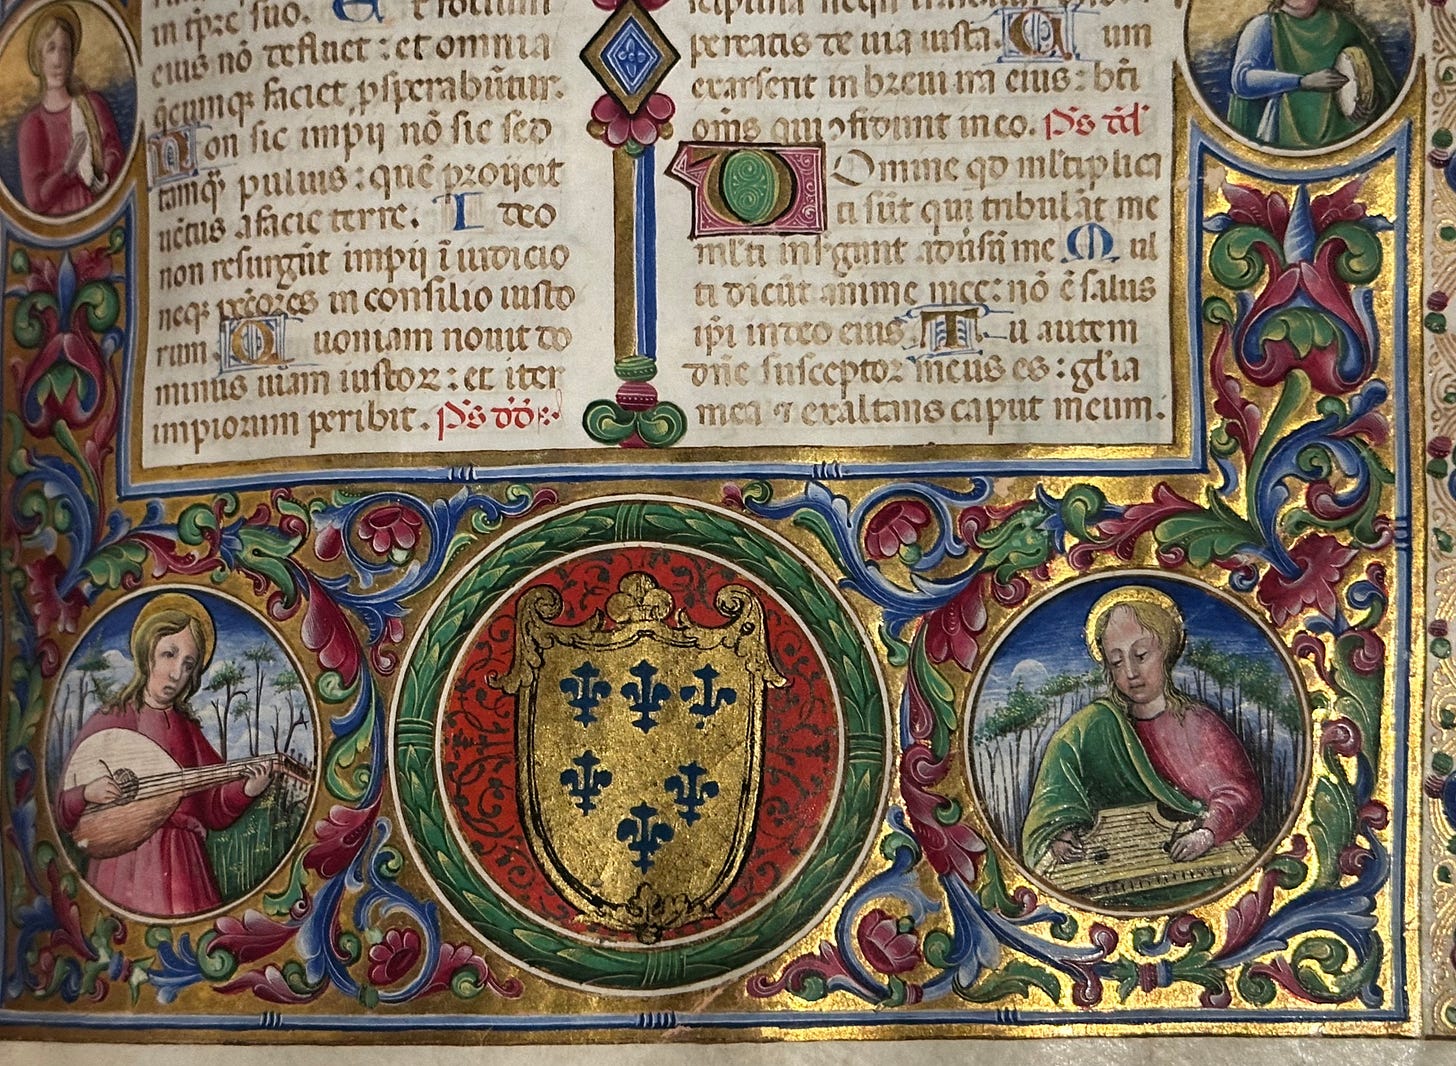 in tp̃re suo. Et folium
eius nõ defluet : et omnia
q̃cumqꝫ faciet ꝓsperabũtur.
Non sic impij nõ sic sed
tamq̃ puluis : quẽ proijcit
uẽtus a facie terre. Ideo
non resurgũt impij ĩ iudicio
neqꝫ pcc̃ores in consilio iusto
rum. Quoniam nouit do
minus uiam iustoꝝ : et iter
impiorum peribit. Ps dd̃
pereatis de uia iusta. Cum
exarserit in breui ira eius : bt̃i
om̃s qui ꝯfidunt in eo. Ps dd̃
Domine qd ml̃tiplici
ti sũt qui tribulãt me
ml̃ti insurgunt aduisũ me Mul
ti dicũt anime mee : nõ ẽ salus
ip̃i in deo eius Tu autem
dñe susceptor meus es : gl̃ia
mea ⁊ exaltans caput meum.